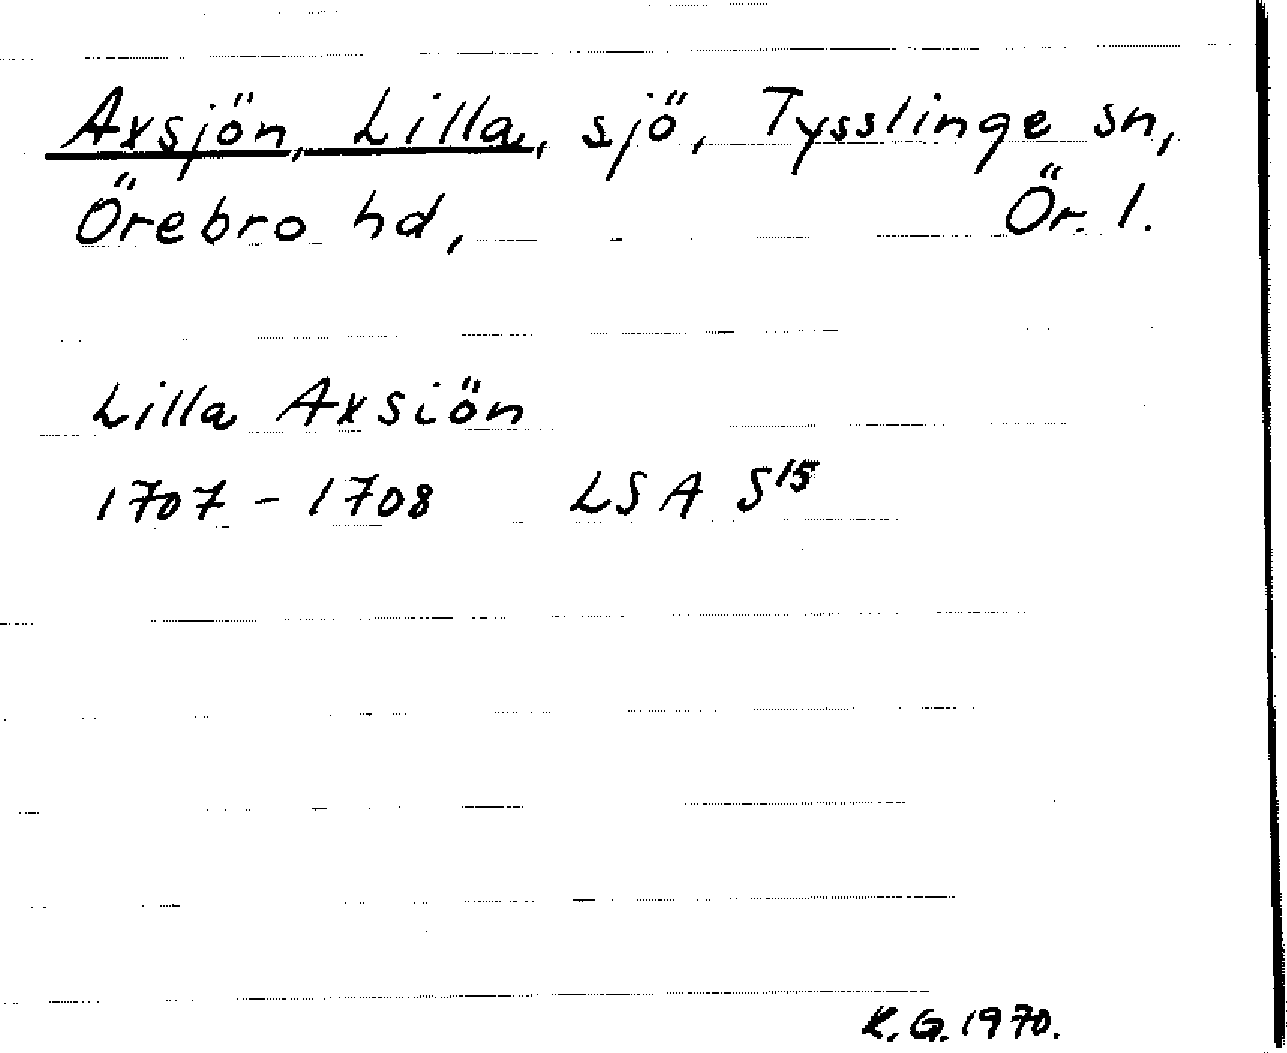 Axsjön, Lilla, sjö, Tysslinge sn,
Örebro hd, Ör. l.
Lilla Axsiön
1707-1708 LSA S15
K.G. 1970.